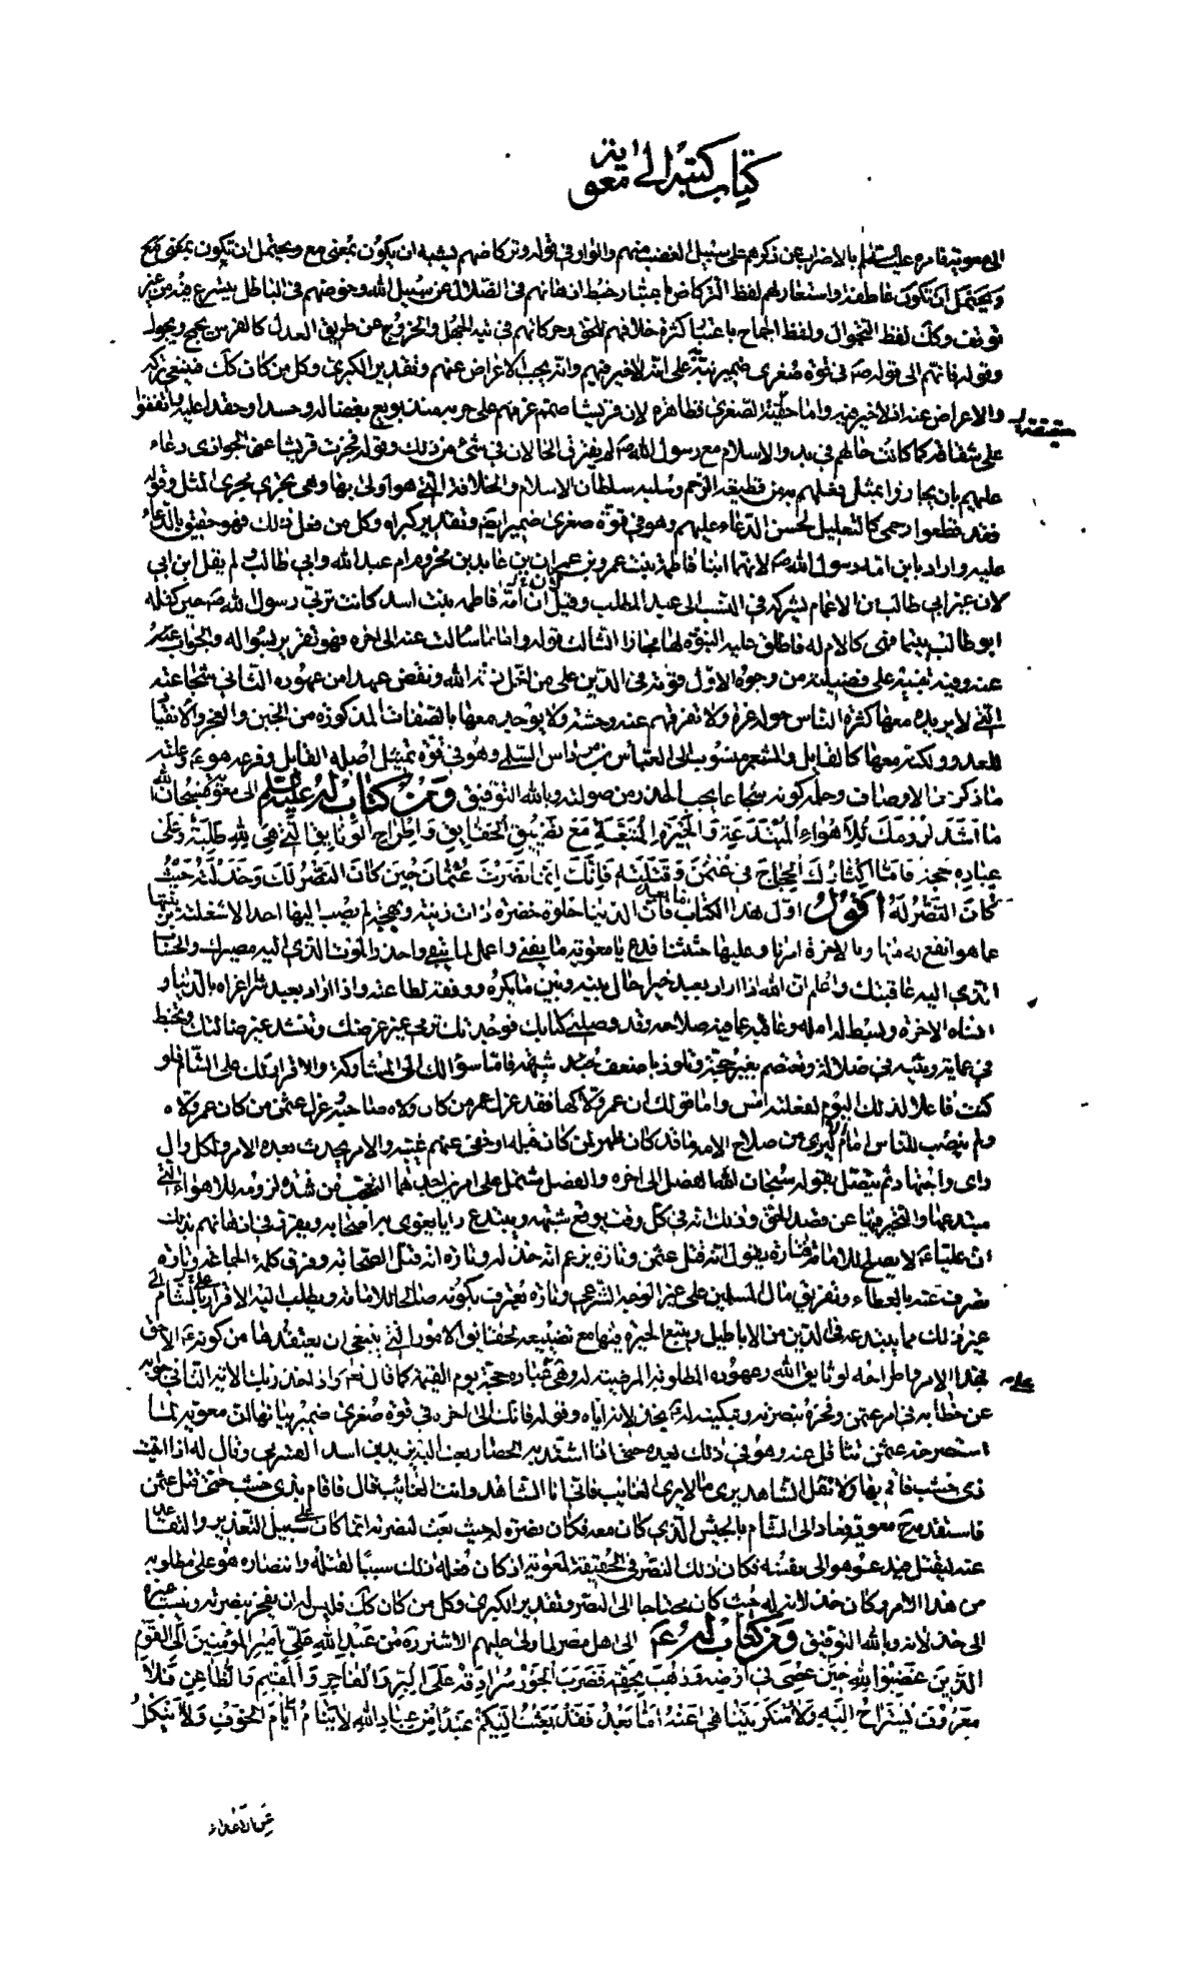 كتاب كتبه الى معوية
الى معوية فامره عليه السلام بالاضراب عن ذكرهم على سبيل الغضب منهم والواو فى قوله وتركاضهم يشبه ان يكون بمعنى مع ويحتمل ان تكون بمعنى مع
ويحتمل ان تكون عاطفة واستعار لهم لفظ التركاض باعتبار خبط اذهانهم فى الضلال عن سبيل الله وخوضهم فى الباطل بتسرع فيه من غير
توقف وكك لفظ التجوال ولفظ الجماح باعتبار كثرة خلافهم للحق وحركاتهم فى تيه الجهل والخروج عن طريق العدل كالفرس يجمح ويجول
وقوله فانهم الى قوله ص فى قوة صغرى ضمير نبه على انه لا خير فيهم وانه يجب الاعراض عنهم وتقدير الكبرى وكل من كان كك فينبغى تركه
والاعراض عنه اذ لا خير فيه واما حقية الصغرى فظاهره لان قريشا منهم عزمهم على حربه منذ بويع بغضا له وحسدا وحقدا عليه واتفقوا
على شقاقه كما كانت حالهم فى بدو الاسلام مع رسول الله ص لم يفترق الحالان فى شئ من ذلك وقوله فجزت قريشا عنى الجوازى دعاء
عليهم بان يجازوا بمثل فعلهم به من قطيعة الرحم وسلبه سلطان الاسلام والخلافة التى هو اولى بها وهى تجرى مجرى المثل وقوله
فقد قطعوا رحمى كالتعليل لحسن الدعاء عليهم وهو فى قوة صغرى ضمير ايضا وتقدير كبراه وكل من فعل ذلك فهو حقيق بالدعاء
عليه واراد بابن امه رسول الله ص لانهما ابنا فاطمة بنت عمرو بن عمران بن عايد بن مخزوم ام عبد الله وابى طالب لم يقل ابن ابى
لان غير ابى طالب من الاعمام يشركه فى النسب الى عبد المطلب وقيل ان امه فاطمه بنت اسد كانت تربى رسول الله ص حين كفله
ابو طالب يتيما فهى كالام له فاطلق عليه البنوة لها مجازا الثالث قوله واما ما سالت عنه الى اخره فهو تقرير لسواله والجواب
عنه وفيه تنبيه على فضيلته من وجوه الاول قوته فى الدين على من احل ذمة الله ونقض عهدا من عهوده الثانى شجاعته
التى لا يزيده معها كثرة الناس حوله عزة ولا تفرقهم عنه وحشة ولا يوجد معها بالصفات المذكورة من الجبن والعجز والانقياد
للعدو ولكنه معها كالقايل والشعر منسوب الى العباس بن مرداس السلمى وهو فى قوة تمثيل اصله القايل وفرعه هو ع وعلته
ما ذكر من الاوصاف وحكمه كونه شجاعا يجب الحذر من صولته وبالله التوفيق ومن كتاب له عليه السلم الى معوية فسبحان الله
ما اشد لزومك للاهواء المبتدعة والحيرة المتبعة مع تضييع الحقايق واطراح الوثايق التى هى لله طلبة وعلى
عباده حجة فاما اكثارك الحجاج فى عثمن وقتلته فانك انما نصرت عثمان حين كان النصر لك وخذلته حيث
كان النصر له اقول اول هذا الكتاب اما بعد فان الدنيا حلوة خضرة ذات زينة وبهجة لم يصب اليها احد الا شغلته بزينتها
عما هو انفع له منها وبالاخرة امرنا وعليها حثثنا فدع يا معوية ما يفنى واعمل لما يبقى واحذر الموت الذى اليه مصيرك والحساب
الذى اليه عاقبتك واعلم ان الله اذا اراد بعبد خيرا حال بينه وبين ما يكره ووفقه لطاعته واذا اراد بعبد شرا اغراه بالدنيا و
انساه الاخرة وبسط له امله وعاقه عما فيه صلاحه وقد وصلنى كتابك فوجدتك ترمى غير غرضك وتنشد غير ضالتك وتخبط
فى عماية وتتيه فى ضلالة وتعتصم بغير حجة وتلوذ باضعف شبهة فاما سؤالك الى المشاركة والاقرار لك على الشام فلو
كنت فاعلا لذلك اليوم لفعلته امس واما قولك ان عمر ولاكها فقد عزل عمر من كان ولاه صاحبه وعزل عثمن من كان عمر ولاه
ولم ينصب للناس امام الا ليرى من صلاح الامة ما قد كان ظهر لمن كان قبله او خفى عنهم عيبه والامر يحدث بعده الامر ولكل وال
راى واجتهاد ثم يتصل بقوله سبحان الله الفصل الى اخره والفصل مشتمل على امرين احدهما التعجب من شدة لزومه للاهواء التى
يبتدعها والتحير فيها عن قصد الحق وذلك انه فى كل وقت يوقع شبهة ويبتدع رايا يغوى به اصحابه ويقرر فى اذهانهم بذلك
ان عليا ع لا يصلح للامامة فتارة يقول انه قتل عثمن وتارة يزعم انه خذله وتارة انه قتل الصحابة وفرق كلمة الجماعة وتارة
تصرف عنه بالعطاء وتفريق مال المسلمين على غير الوجه الشرعى وتارة يعترف بكونه صالحا للامامة ويطلب اليه الاقرار على الشام الى
غير ذلك مما يبتدعه فى الدين من الاباطيل ويتبع الحيرة فيها مع تضييعه لحقايق الامور التى ينبغى ان يعتقدها من كونه ع الاحق
بهذا الامر واطراحه لوثايق الله وعهوده المطلوبة المرضية له وهى على عباده حجة يوم القيمة كما قال تعالى واذ اخذ ربك الاية الثانى جوابه
عن خطابه فى امر عثمن وفخره بنصرته وتبكيته له بخذلانه اياه وقوله فانك الى اخره فى قوة صغرى ضمير بيانها ان معوية لما
استصرخه عثمن تثاقل عنه وهو فى ذلك يعده حتى اذا اشتد به الحصار بعث اليه يزيد بن اسد القشرى وقال له اذا اتيت
ذى خشب فاقم بها ولا تقل الشاهد يرى ما لا يرى الغايب فانى انا الشاهد وانت الغائب قال فاقام بذى خشب حتى قتل عثمن
فاستقدمه ح معوية فعاد الى الشام بالجيش الذى كان معه فكان نصره له حيث بعث لنصرته انما كان على سبيل التعذير والتقاعد
عنه ليقتل فيدعو هو الى نفسه فكان ذلك النصر فى الحقيقة لمعوية اذ كان فعله ذلك سببا لقتله وانتصاره هو على مطلوبه
من هذا الامر وكان خذلانه له حيث كان محتاجا الى النصر وتقدير الكبرى وكل من كان كك فليس له ان يفخر بنصرته وينسب غيره
الى خذلانه وبالله التوفيق ومن كتاب له ع م الى اهل مصر لما ولى عليهم الاشتر ره من عبد الله على امير المؤمنين الى القوم
الذين غضبوا لله حين عصى فى ارضه وذهب بحقه فضرب الجور سرادقه على البر والفاجر والمقيم والظاعن فلا
معروف يستراح اليه ولا منكر يتناهى عنه اما بعد فقد بعثت اليكم عبدا من عباد الله لا ينام ايام الخوف ولا ينكل
عن الاعداء